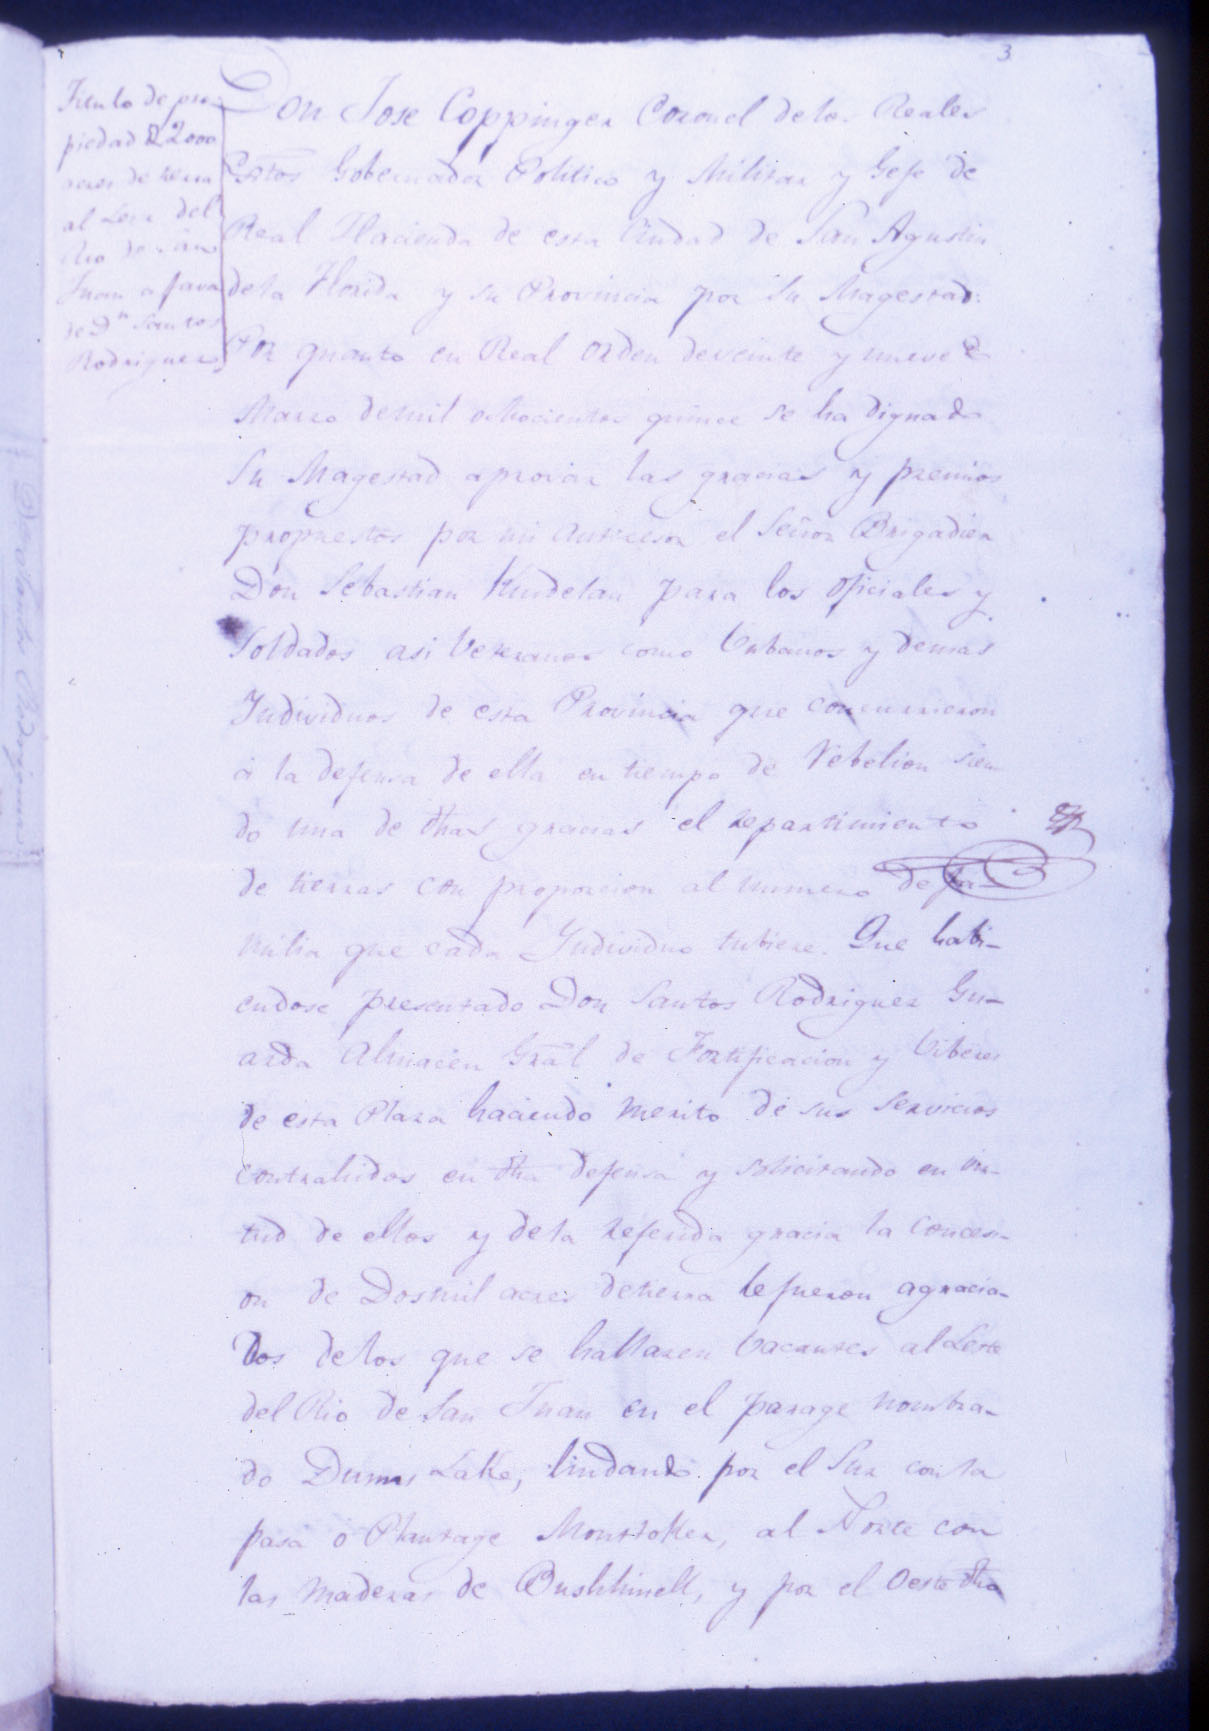 3
Titulo de pro-
piedad de 2000
acres de tierra
al Leste del
Rio de San
Juan a favor
de Dn Santos
Rodriguez
Don Jose Coppinger Coronel delos Reales
Extos Gobernador Politico y Militar y Gefe de
Real Hacienda de esta Ciudad de San Agustin
dela Florida y su Provincia por Su Magestad:
Por quanto en Real orden deveinte y nueve de
Marzo demil ochocientos quince se ha dignado
Su Magestad aprovar las gracias y premios
propuestos por mi antecesor el Señor Brigadier
Don Sebastian Kindelan para los oficiales y
Soldados asi Veteranos como Urbanos y demas
Individuos de esta Provincia que concurrieron
á la defensa de ella en tiempo de Rebelion sien-
do una de dhas gracias el repartimiento
de tierras con proporcion al numero de fa-
milia que cada Individuo tubiere. Que habi-
endose presentado Don Santos Rodriguez Gu-
arda Almacen Gral de Fortificacion y Viberes
de esta Plaza haciendo merito de sus servicios
contrahidos en dha defensa y solicitando en vir-
tud de ellos y dela referida gracia la concesi-
on de Dosmil acres detierra le fueron agracia-
dos delos que se hallaren bacantes al Leste
del Rio de San Juan en el parage nombra-
do Dunns Lake, lindando por el Sur con la
pasa ó Plantage Mount
al Norte con
las Maderas de Bushhinell, y por el Oeste dha